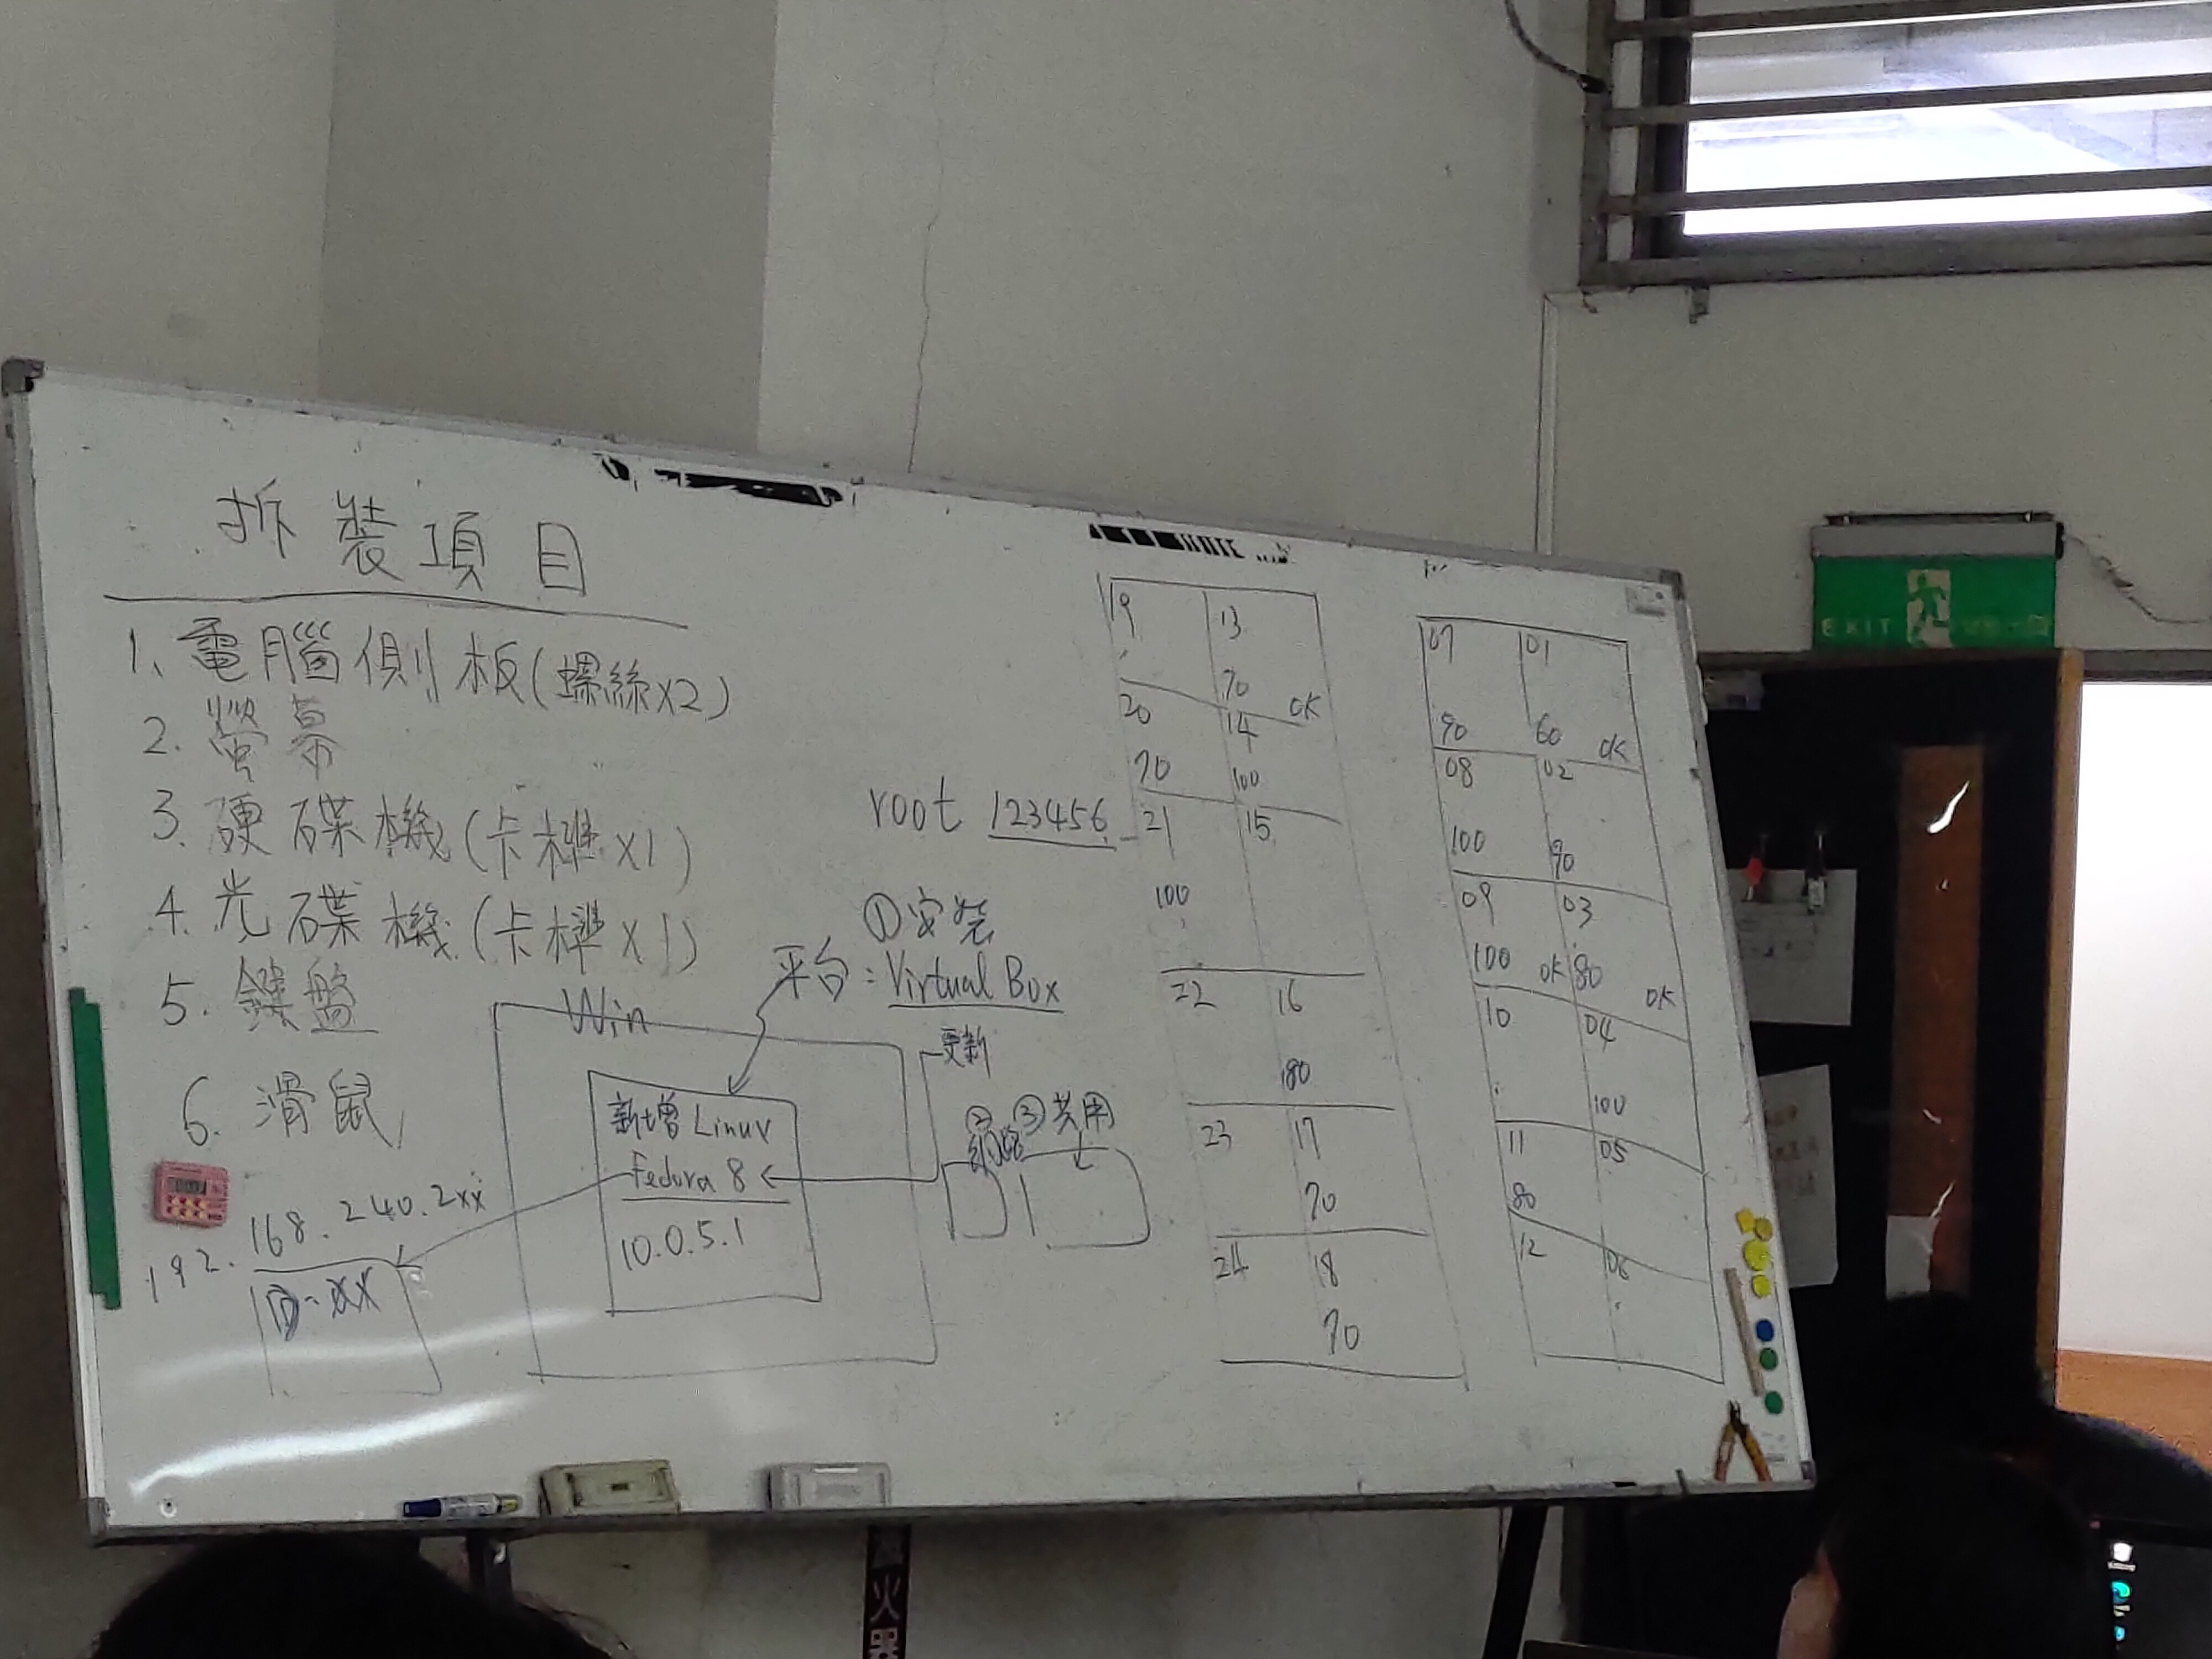 拆裝項目
1. 電腦側板(螺絲x2)
2. 螢幕
3. 硬碟機(卡榫x1)
4. 光碟機(卡榫x1)
5. 鍵盤
6. 滑鼠
192.168.240.2xx
D-XX
Win
新增 Linux
Fedora 8
10.0.5.1
root 123456
①安裝
平台:Virtual Box
更新
② ③共用
網路
19 13
70 OK
20 14
70 100
21 15
100
22 16
80
23 17
70
24 18
70
07 01
90 60 OK
08 02
100 90
09 03
100 OK 80 OK
10 04
100
11 05
80
12 06
EXIT
火
器